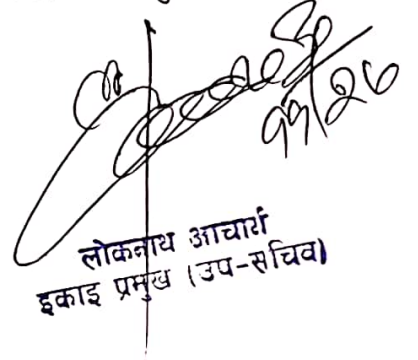 ११/२७
लोकनाथ आचार्य
इकाइ प्रमुख (उप-सचिव)